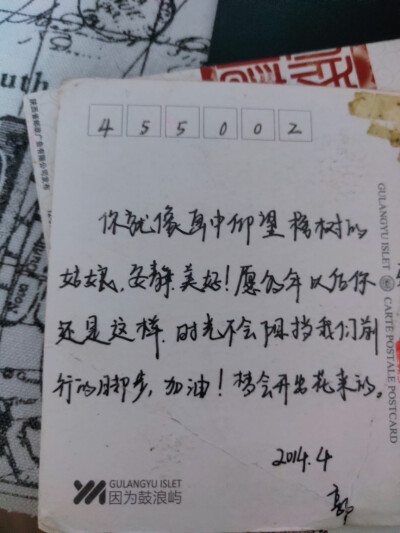 455002
你就像画中仰望榕树的
姑娘,安静.美好!愿多年以后你
还是这样.时光不会阻挡我们前
行的脚步,加油!梦会开出花来的。
2014.4
郭
GULANGYU ISLET
因为鼓浪屿
GULANGYU ISLET
CARTE POSTALE POSTCARD
outh